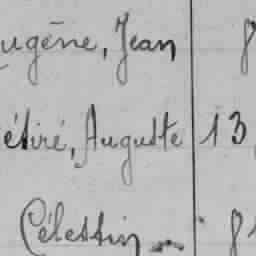 ugène, Jean 8
étiré, Auguste 13
Célestin 8